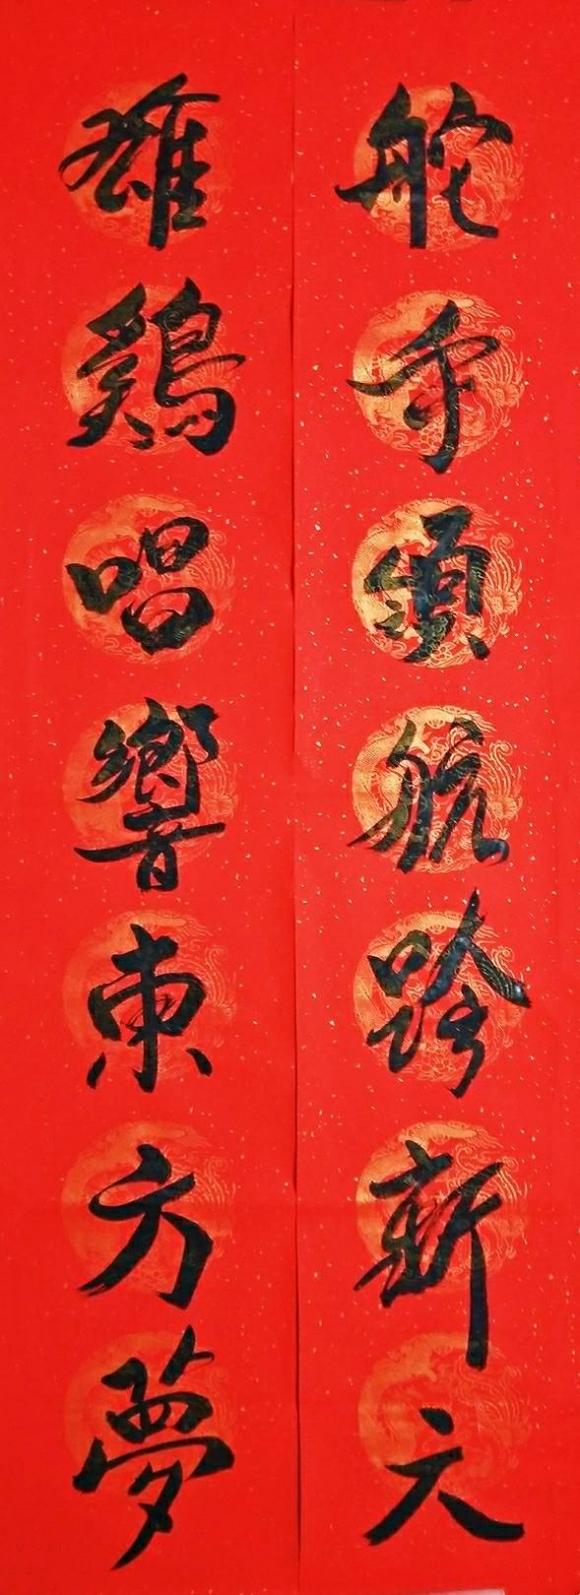 舵手領航跨新天
雄鷄唱響東方夢